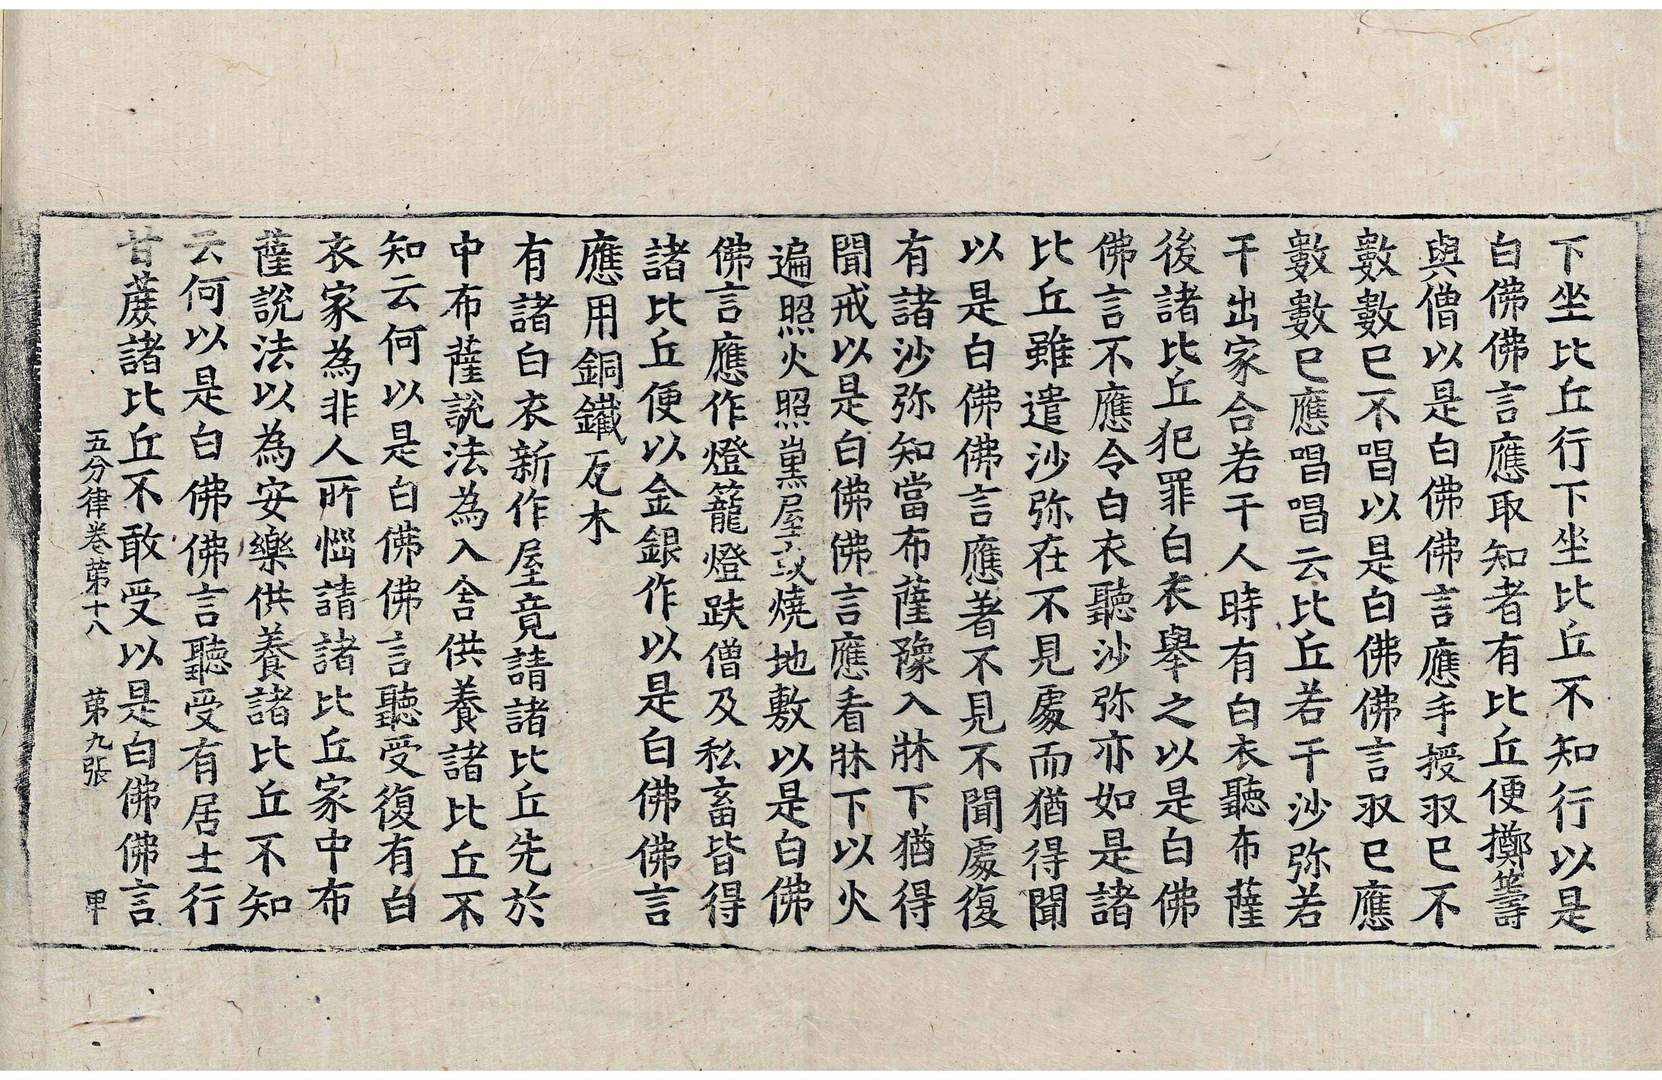 下坐比丘行下坐比丘不知行以是
白佛佛言應取知者有比丘便擲籌
與僧以是白佛佛言應手授収已不
數數已不唱以是白佛佛言収已應
數數已應唱唱云比丘若干沙弥若
干出家合若干人時有白衣聽布薩
後諸比丘犯罪白衣舉之以是白佛
佛言不應令白衣聽沙弥亦如是諸
比丘雖遣沙弥在不見處而猶得聞
以是白佛佛言應著不見不聞處復
有諸沙弥知當布薩豫入牀下猶得
聞戒以是白佛佛言應看牀下以火
遍照火照熏屋或燒地敷以是白佛
佛言應作燈籠燈趺僧及私畜皆得
諸比丘便以金銀作以是白佛佛言
應用銅鐵瓦木
有諸白衣新作屋竟請諸比丘先於
中布薩說法為入舍供養諸比丘不
知云何以是白佛佛言聽受復有白
衣家為非人所惱請諸比丘家中布
薩說法以為安樂供養諸比丘不知
云何以是白佛佛言聽受有居士行
甘蔗諸比丘不敢受以是白佛佛言
五分律卷第十八 第九張 甲